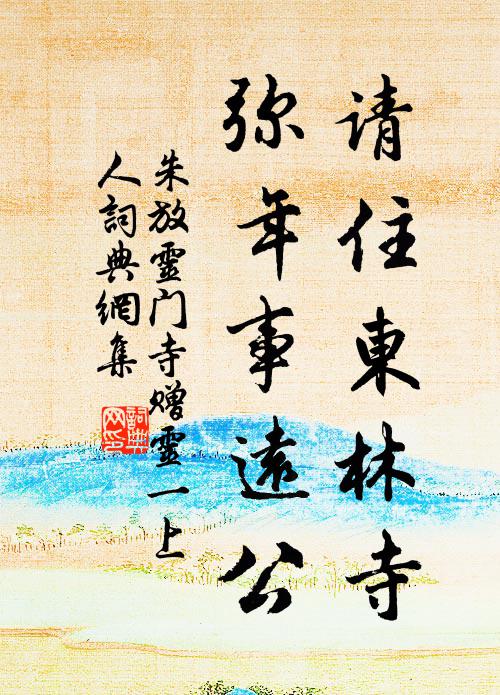 请住東林寺
弥年事遠公
朱放靈门寺赠靈一上
人詞典網集
詞典
网印